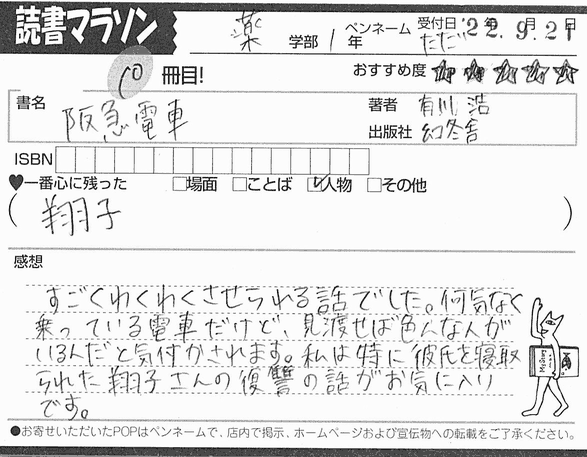 読書マラソン
薬 学部 1 年 ペンネーム ただ 受付日 '22年 9月 21日
10 冊目! おすすめ度 ★★★★★
書名 阪急電車 著者 有川 浩
出版社 幻冬舎
ISBN
♥一番心に残った □場面 □ことば ☑人物 □その他
( 翔子 )
感想
すごくわくわくさせられる話でした。何気なく
乗っている電車だけど、見渡せば色んな人が
いるんだと気付かされます。私は特に彼氏を寝取
られた翔子さんの復讐の話がお気に入り
です。
●お寄せいただいたPOPはペンネームで、店内で掲示、ホームページおよび宣伝物への転載をご了承ください。